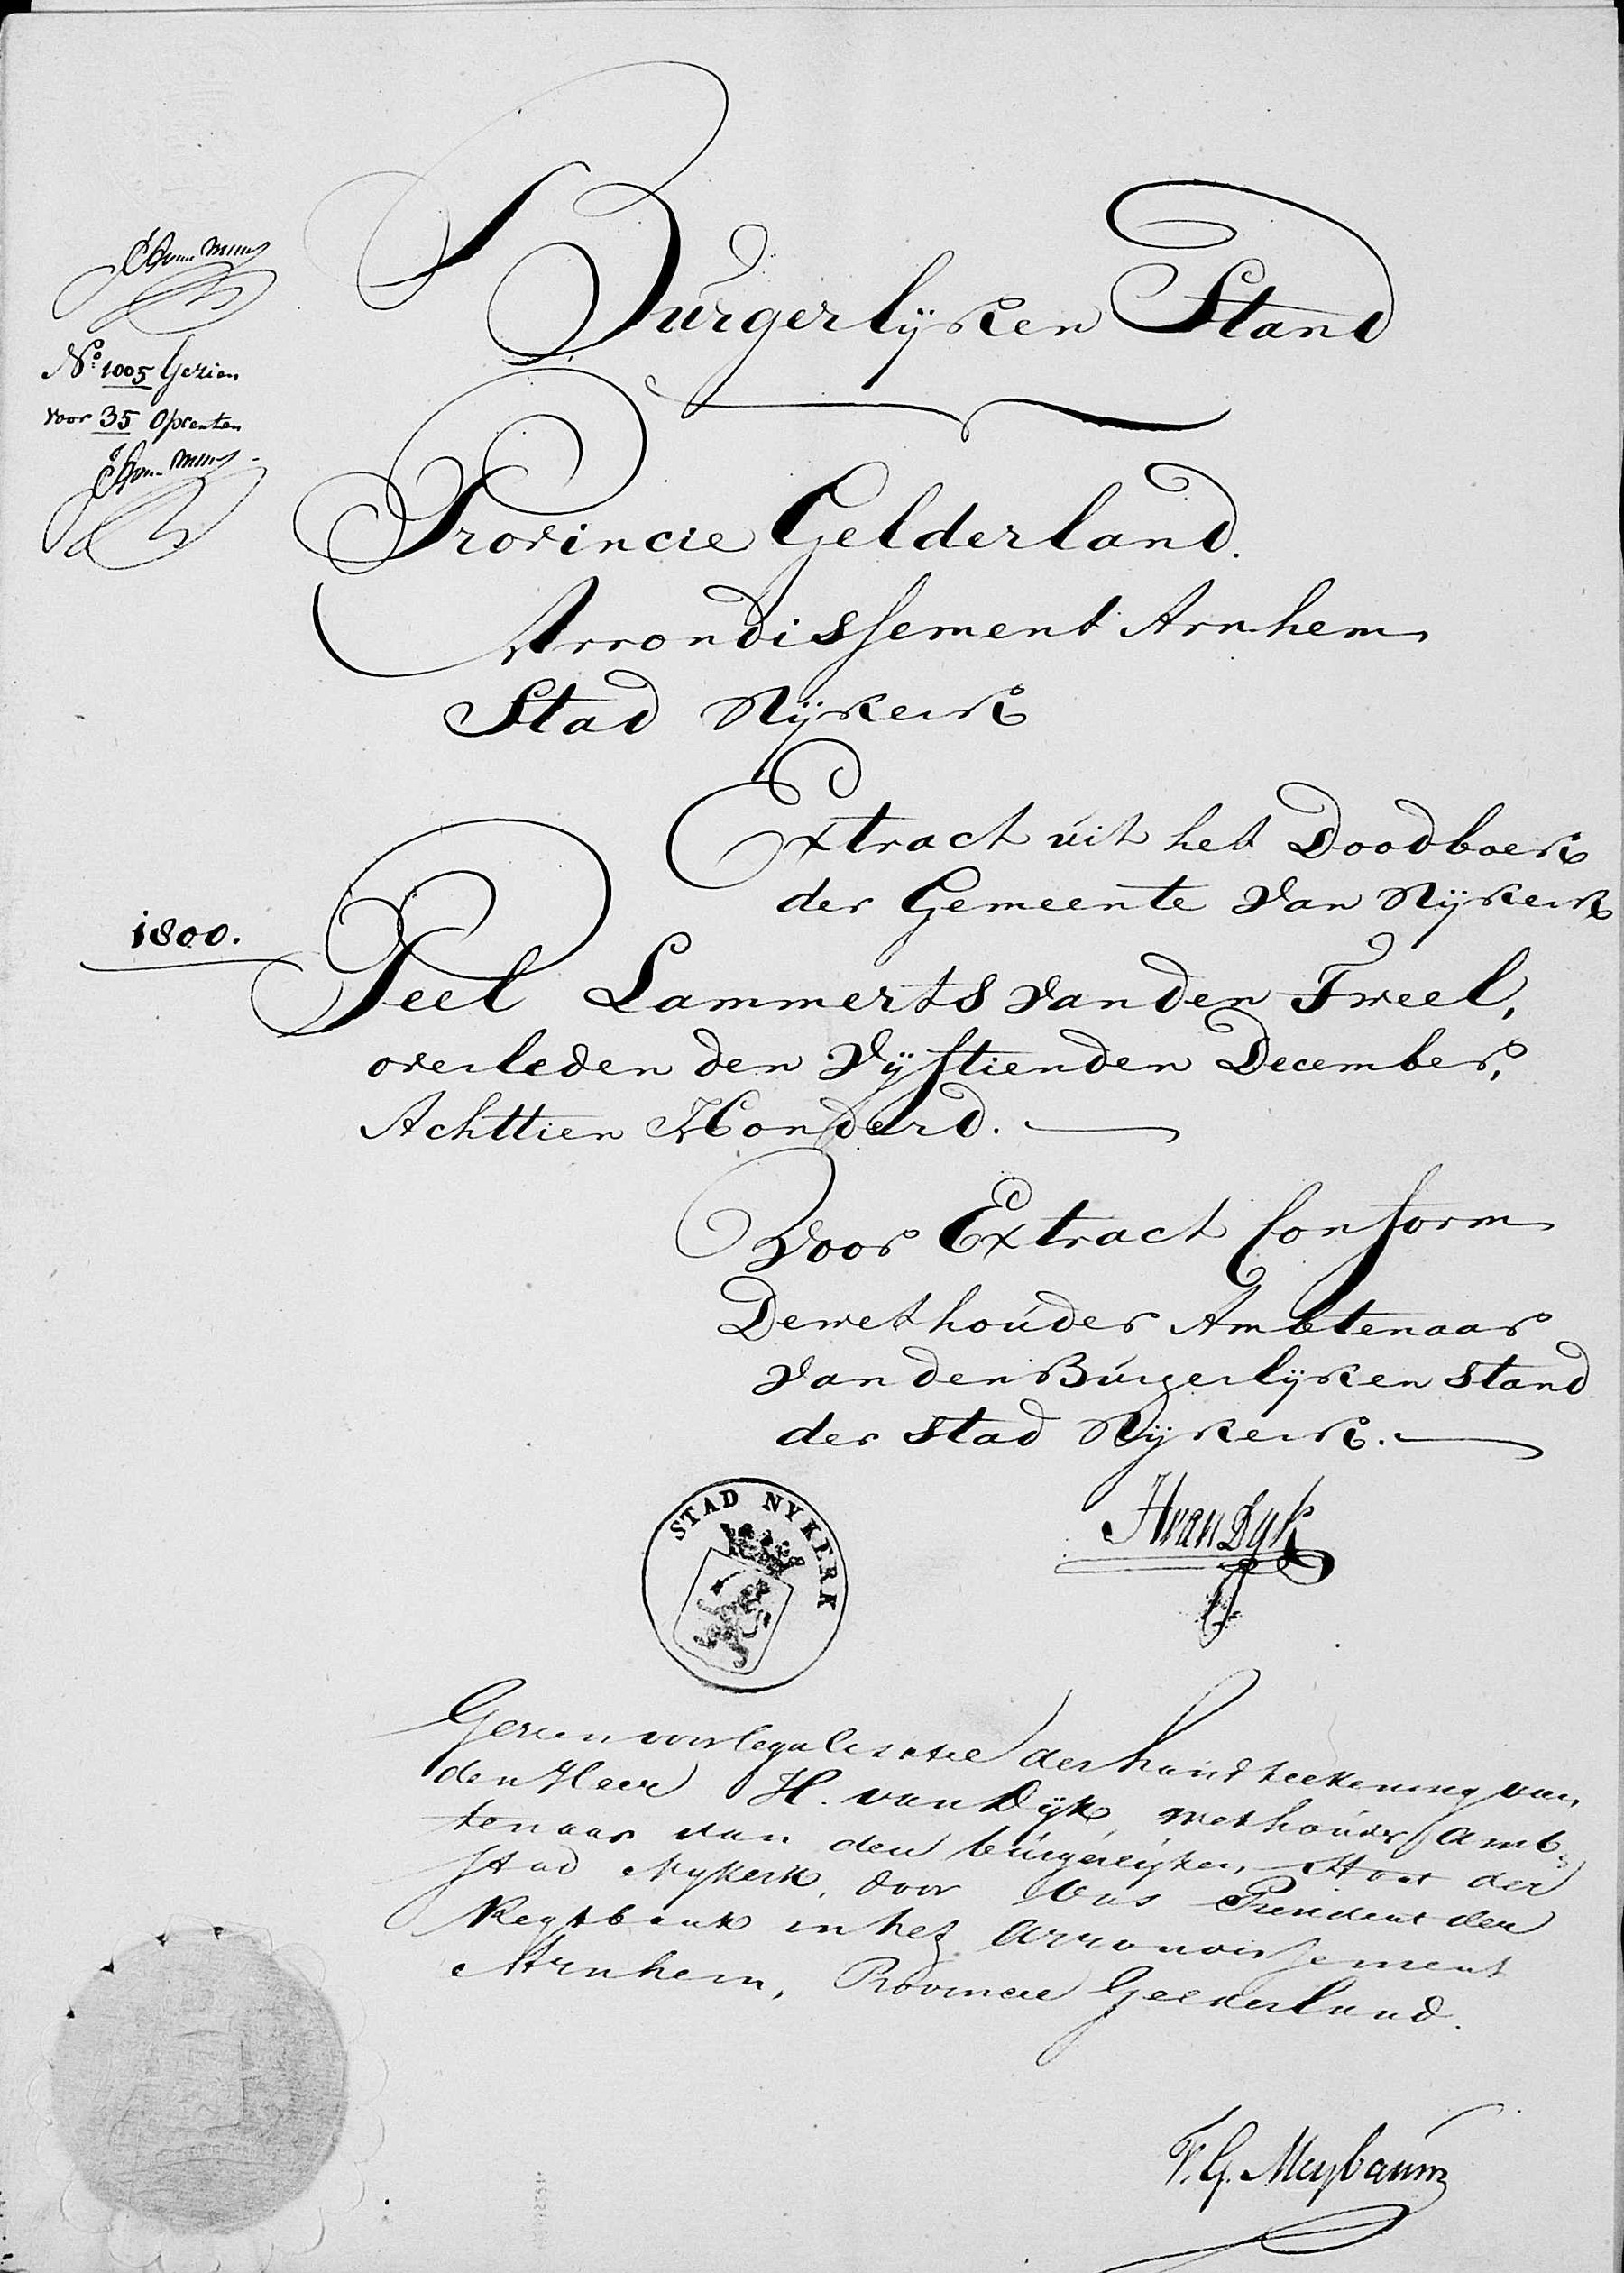 Burgerlyken Stand
No. 1005 Gezien
voor 35 Opcenten
Provincie Gelderland.
Arrondissement Arnhem
Stad Nÿkerk
Extract uit het Doodboek
der Gemeente van Nÿkerk
1800.
Peel Lammerts van den Tweel,
overleden den vÿftienden December,
Achttien Honderd.
Voor Extract Conform
De wethouder Ambtenaar
van den Burgerlÿken stand
der stad Nÿkerk.
STAD NYKERK
H van Dyk
Gezien voor legalisatie der handteekening van
den Heer H. van Dÿk, wethouder Amb-
tenaar van den burgerlÿken Staat der
stad Nykerk, door Ons President der
Regtbank in het Arrondissement
Arnhem, Provincie Gelderland.
F. G. Meybaum